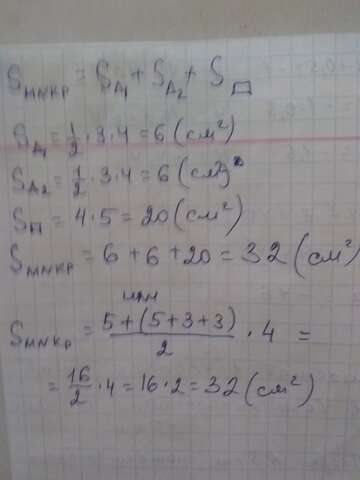 S_MNKP = S_Δ1 + S_Δ2 + S_▭
S_Δ1 = 1/2 · 3 · 4 = 6 (см²)
S_Δ2 = 1/2 · 3 · 4 = 6 (см²)
S_П = 4 · 5 = 20 (см²)
S_MNKP = 6 + 6 + 20 = 32 (см²)
или
S_MNKP = (5 + (5 + 3 + 3))/2 · 4 =
= 16/2 · 4 = 16 · 2 = 32 (см²)